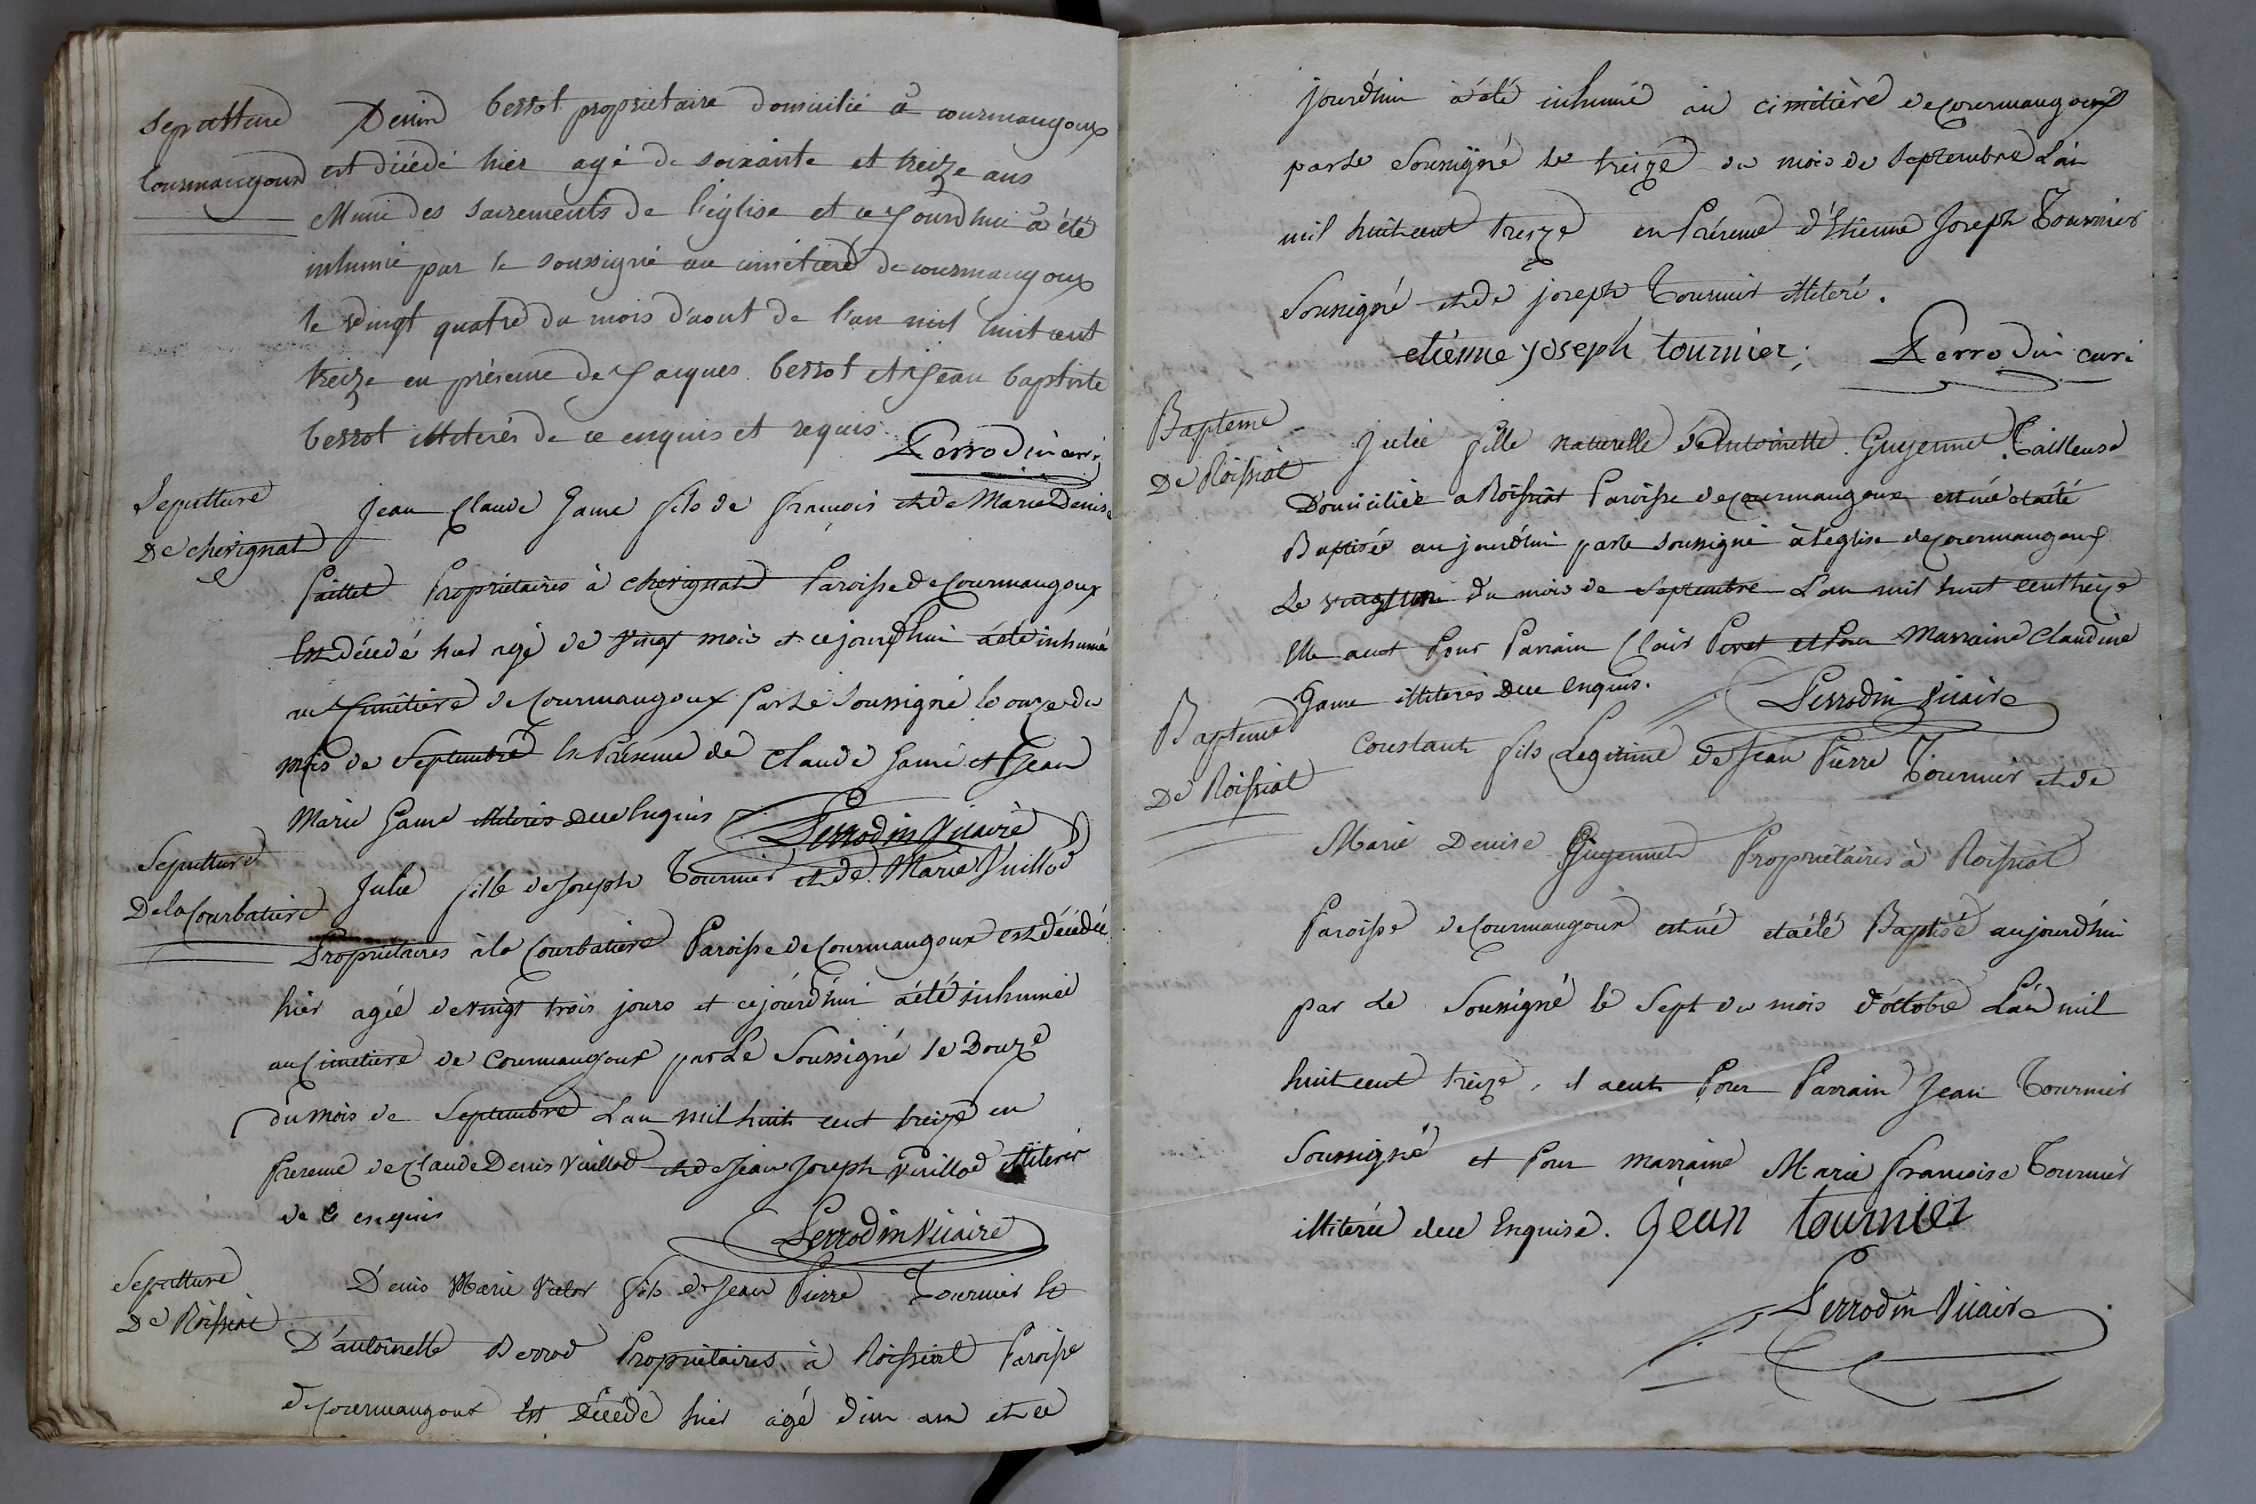 Sepulture
Courmangoux
Denis berrot proprietaire domicilié à courmangoux
est décédé hier agé de soixante et treize ans
Muni des sacrements de l'église et ce jourd'hui a été
inhumé par le soussigné au cimétiere de courmangoux
le vingt quatre du mois d'aout de l'an mil huit cent
treize en présence de Jacques berrot et Jean baptiste
berrot illiterés de ce enquis et requis. Perrodin curé
Sepulture
De cherignat
Jean Claude Game fils de François et de Marie Denise
Paillet Propriétaires à cherignat Paroisse de Courmangoux
Est décédé hier agé de vingt mois et ce jourd'hui a été inhumé
au Cimétière de Courmangoux Par Le Soussigné le onze du
mois de Septembre En Présence de Claude Game et Jean
Marie Game illiterés de ce Enquis Perrodin Vicaire
Sepulture
De la Courbatiere
Julie fille de Joseph Tournier et de Marie Vuillod
Propriétaires à la Courbatiere Paroisse de Courmangoux est décédée
hier agée de vingt trois jours et ce jourd'hui a été inhumée
au Cimetiere de Courmangoux par Le Soussigné le Douze
du mois de Septembre L'an mil huit cent treize en
Presence de Claude Denis Vuillod et de Jean Joseph Vuillod illiterés
de ce enquis
Perrodin Vicaire
Sepulture
De Roissiat
Denis Marie Victor fils de Jean Pierre Tournier Et
D'antoinette Berrod Propriétaires à Roissiat Paroisse
de Courmangoux Est Décédé hier agé d'un an et ce
jourd'hui a été inhumé au cimitière de Courmangoux
par Le Soussigné le treize du mois de Septembre L'an
mil huit cent treize en Présence d'Etienne Joseph Tournier
Soussigné et de joseph Tournier illiteré.
etienne joseph tournier; Perrodin curé
Bapteme
De Roissiat
Julie fille naturelle de Antoinette Guyennet Tailleuse
Domiciliée a Roissiat Paroisse de Courmangoux est née et a été
Baptisée au jourd'hui par le soussigné à l'eglise de Courmangoux
Le vingt un du mois de Septembre L'an mil huit cent treize
Elle a eut Pour Parrain Clair Perret et Pour Marraine Claudine
Game illiterés De ce enquis. Perrodin Vicaire
Bapteme
De Roissiat
Constant fils Legitime de Jean Pierre Tournier et de
Marie Denise Guyennet Propriétaires à Roissiat
Paroisse de Courmangoux est né et a été Baptisé aujourd'hui
par Le Soussigné le Sept du mois d'octobre L'an mil
huit cent treize, il a eut Pour Parrain Jean Tournier
Soussigné et Pour marraine Marie francoise Tournier
illiterée de ce Enquise. jean tournier
Perrodin Vicaire